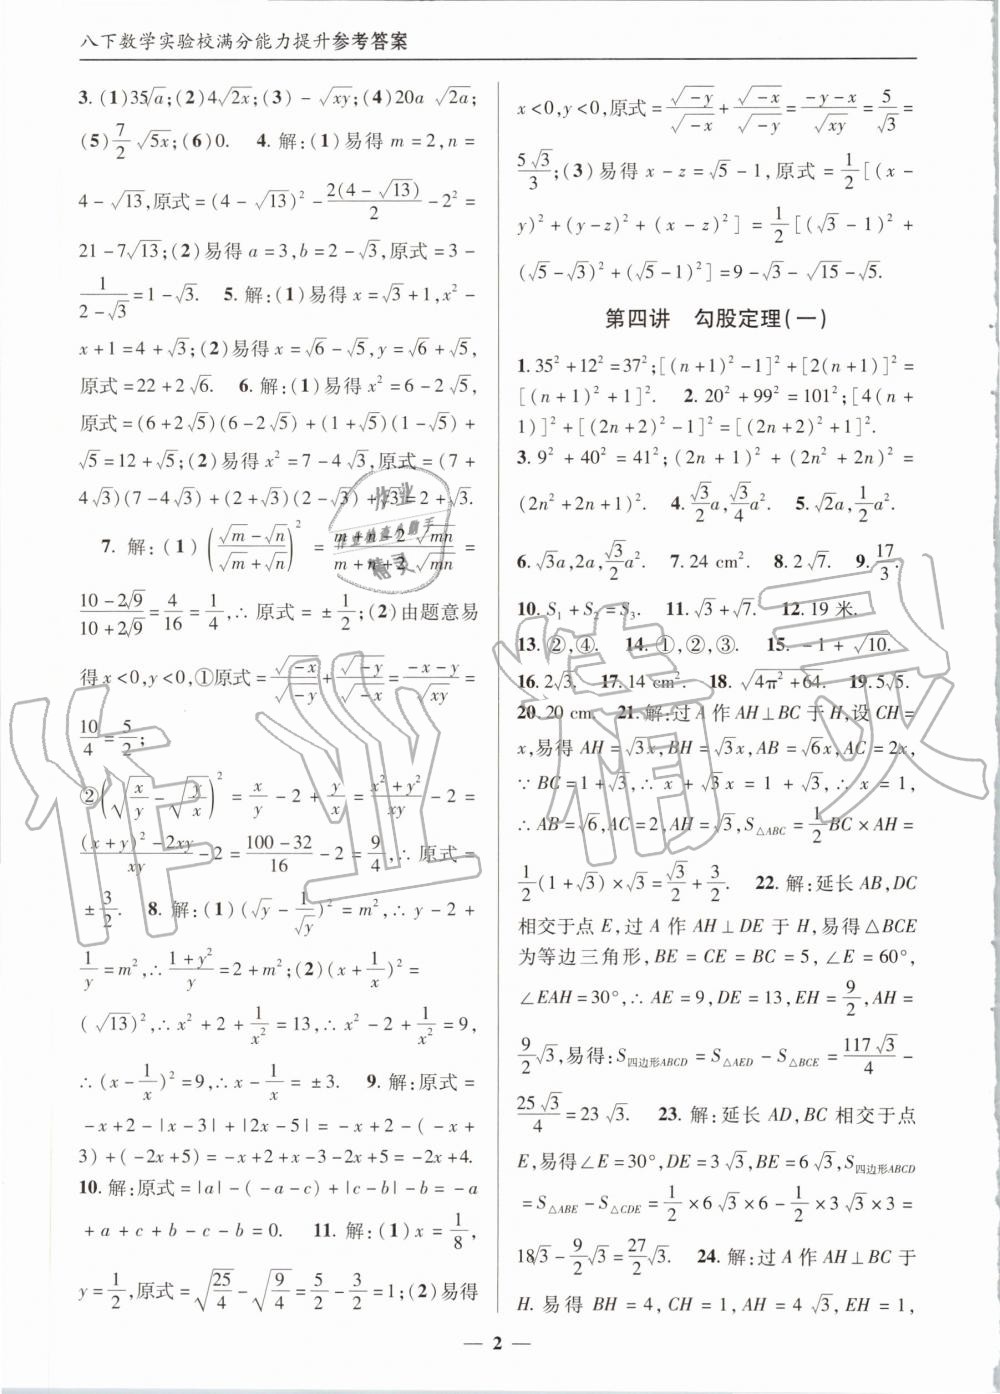 八下数学实验校满分能力提升参考答案
3. (1)35√a;(2)4√(2x);(3)-√(xy);(4)20a √(2a);
(5)7/2 √(5x);(6)0. 4. 解:(1)易得 m=2,n=
4-√13,原式=(4-√13)²-2(4-√13)/2-2²=
21-7√13;(2)易得 a=3,b=2-√3,原式=3-
1/(2-√3)=1-√3. 5. 解:(1)易得 x=√3+1,x²-
x+1=4+√3;(2)易得 x=√6-√5,y=√6+√5,
原式=22+2√6. 6. 解:(1)易得 x²=6-2√5,
原式=(6+2√5)(6-2√5)+(1+√5)(1-√5)+
√5=12+√5;(2)易得 x²=7-4√3,原式=(7+
4√3)(7-4√3)+(2+√3)(2-√3)+√3=2+√3.
7. 解:(1)((√m-√n)/(√m+√n))²=(m+n-2√(mn))/(m+n+2√(mn))=
(10-2√9)/(10+2√9)=4/16=1/4,∴原式=±1/2;(2)由题意易
得 x<0,y<0,①原式=√(-x)/√(-y)+√(-y)/√(-x)=(-x-y)/√(xy)=
10/4=5/2;
②(√(x/y)-√(y/x))²=x/y-2+y/x=(x²+y²)/xy-2=
((x+y)²-2xy)/xy-2=(100-32)/16-2=9/4,∴原式=
±3/2. 8. 解:(1)(√y-1/√y)²=m²,∴y-2+
1/y=m²,∴(1+y²)/y=2+m²;(2)(x+1/x)²=
(√13)²,∴x²+2+1/x²=13,∴x²-2+1/x²=9,
∴(x-1/x)²=9,∴x-1/x=±3. 9. 解:原式=
-x+2-|x-3|+|2x-5|=-x+2-(-x+
3)+(-2x+5)=-x+2+x-3-2x+5=-2x+4.
10. 解:原式=|a|-(-a-c)+|c-b|-b=-a
+a+c+b-c-b=0. 11. 解:(1)x=1/8,
y=1/2,原式=√(25/4)-√(9/4)=5/2-3/2=1;(2)易得
x<0,y<0,原式=√(-y)/√(-x)+√(-x)/√(-y)=(-y-x)/√(xy)=5/√3=
5√3/3;(3)易得 x-z=√5-1,原式=1/2[(x-
y)²+(y-z)²+(x-z)²]=1/2[(√3-1)²+
(√5-√3)²+(√5-1)²]=9-√3-√15-√5.
第四讲 勾股定理(一)
1. 35²+12²=37²;[(n+1)²-1]²+[2(n+1)]²=
[(n+1)²+1]². 2. 20²+99²=101²;[4(n+
1)]²+[(2n+2)²-1]²=[(2n+2)²+1]².
3. 9²+40²=41²;(2n+1)²+(2n²+2n)²=
(2n²+2n+1)². 4. √3/2 a,√3/4 a². 5. √2a,1/2 a².
6. √3a,2a,√3/2 a². 7. 24 cm². 8. 2√7. 9. 17/3.
10. S₁+S₂=S₃. 11. √3+√7. 12. 19 米.
13. ②,④. 14. ①,②,③. 15. -1+√10.
16. 2√3. 17. 14 cm². 18. √(4π²+64). 19. 5√5.
20. 20 cm. 21. 解:过 A 作 AH⊥BC 于 H,设 CH=
x,易得 AH=√3x,BH=√3x,AB=√6x,AC=2x,
∵BC=1+√3,∴x+√3x=1+√3,∴x=1,
∴AB=√6,AC=2,AH=√3,S△ABC=1/2 BC×AH=
1/2(1+√3)×√3=√3/2+3/2. 22. 解:延长 AB,DC
相交于点 E,过 A 作 AH⊥DE 于 H,易得△BCE
为等边三角形,BE=CE=BC=5,∠E=60°,
∠EAH=30°,∴AE=9,DE=13,EH=9/2,AH=
9/2√3,易得:S四边形ABCD=S△AED-S△BCE=117√3/4-
25√3/4=23√3. 23. 解:延长 AD,BC 相交于点
E,易得∠E=30°,DE=3√3,BE=6√3,S四边形ABCD
=S△ABE-S△CDE=1/2×6√3×6-1/2×3√3×3=
18√3-9/2√3=27/2√3. 24. 解:过 A 作 AH⊥BC 于
H. 易得 BH=4,CH=1,AH=4√3,EH=1,
— 2 —
作业精灵
作业
作业检查小助手
精灵